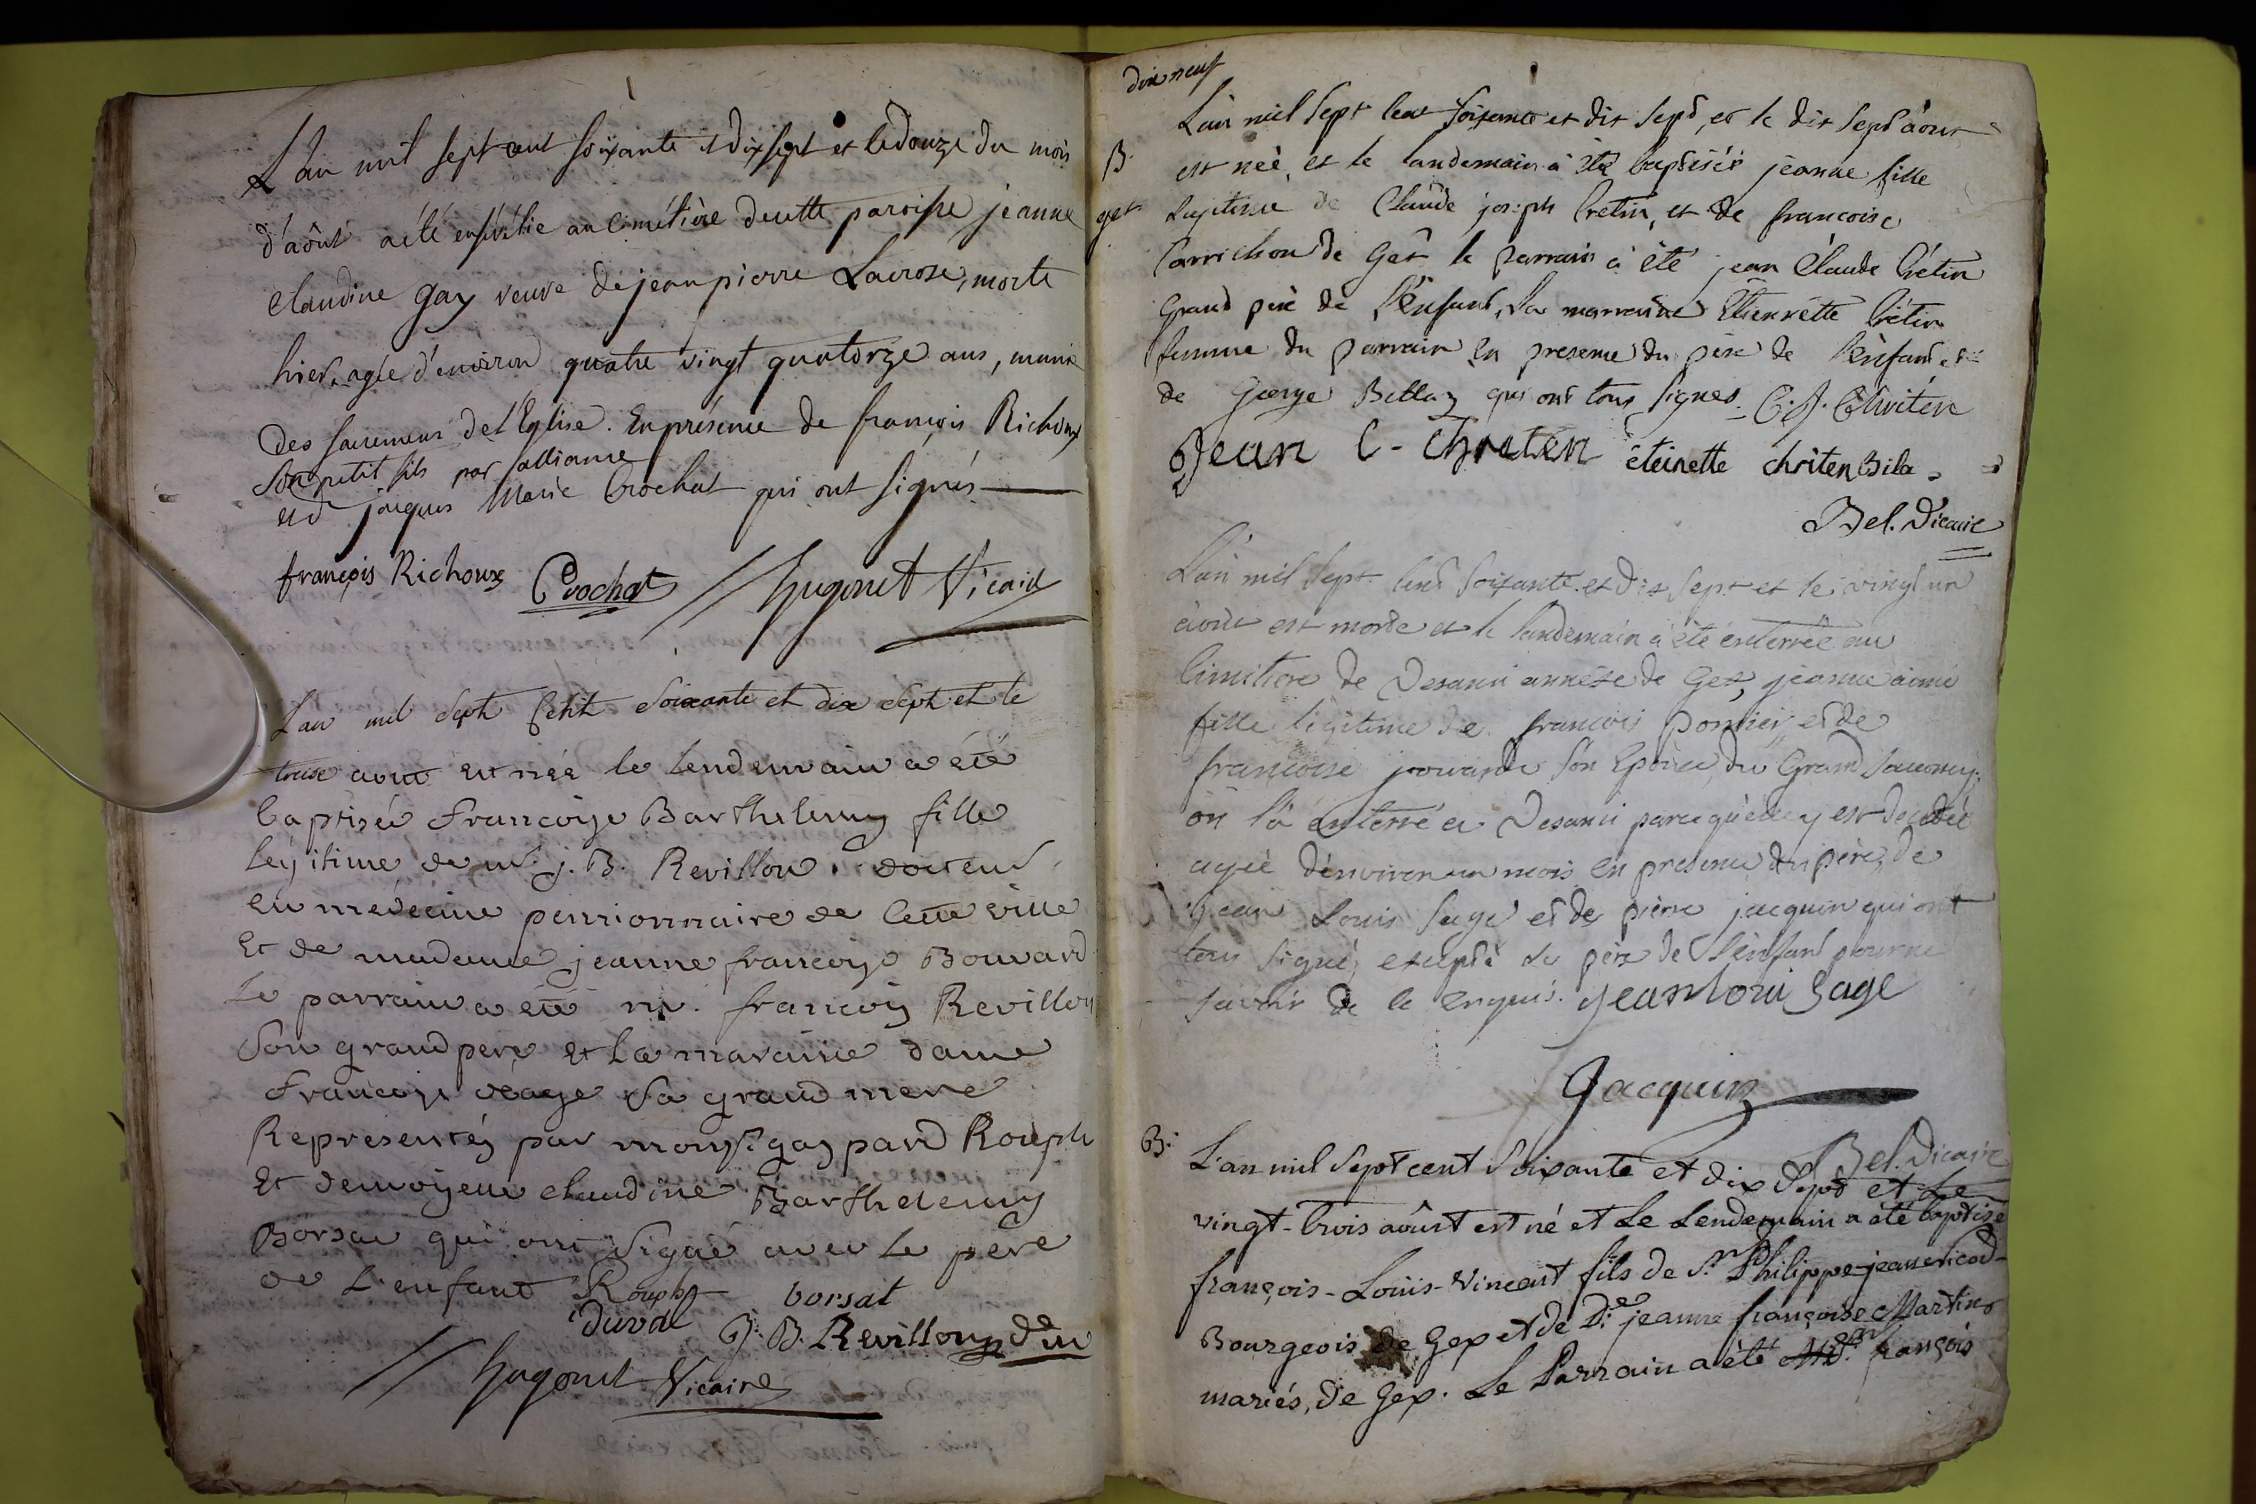 L'an mil sept cent soixante et dix sept et le douze du mois
d'aôut a été ensévélie au cimétière de cette paroisse jeanne
claudine gay veuve de jean pierre Lacroze, morte
hier, agée d'environ quatre vingt quatorze ans, munie
des sacremens de l'Eglise. En présence de françois Richoux
son petit fils par alliance
et d jacques Marie Crochat qui ont signés
françois Richoux Crochat Hugonet Vicaire
L'an mil sept Cent soixante et dix sept et le
treise aout est née le lendemain a été
baptisée francoise Barthelemy fille
legitime de mr. j. B. Revillon docteur
en médecine pensionnaire de cette ville
Et de madame jeanne francoise Bouvard
Le parrain a été mr. francois Revillon
son grand pere et la maraine dame
francoise sa grand mere
Representés par mons.r gaspard Rouph
Et demoiselle claudine Barthelemy
Borsat qui ont signé avec le père
de L'enfant Rouph borsat
Duval J. B. Revillon
Hugonet Vicaire
dix neuf
L'an mil sept cent soixante et dix sept, et le dix sept àout
B. est née, et le landemain à été baptisée jeanne fille
gex Legitime de Claude joseph Cretin, et de francoise
Carrichon de Gex le parrain à été jean Claude Crétin
Grand père de l'enfant, la marraine Etiennette Crétin
femme du parrain en presence du père de l'enfant et
de George Billaz qui ont tous signes. C. J. Chritin
Jean C - Chriten éteinette chriten Bila
Bel. Vicaire
L'an mil sept cent soixante et dix sept et le vingt un
àout est morte et le landemain à été enterrée au
cimitiere de Vesanci annéxe de Gex, jeanne aimé
fille légitime de francois et de
francoise son Epouse du Grand
on l'a enterré a Vesanci parce quelle y est decedée
agée d'environ un mois en presence du père, de
jean Louis Sage et de pierre jacquin qui ont
tous signé, excepté le père de l'enfant pour ne
savoir de ce enquis. jean loui Sage
Jacquin
Bel. Vicaire
B. L'an mil sept cent soixante et dix sept et Le
vingt-trois aôust est né et le Lendemain a été baptisé
françois-Louis-Vincent fils de S.r Philippe-jean
Bourgeois de Gex et de D.e jeanne françoise Martin
mariés, de Gex. Le Parrain a été françois